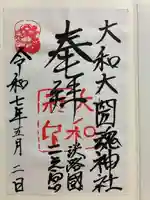 大和大國魂神社
奉拝
淡路國
二之宮
大和
社印
令和七年五月二日